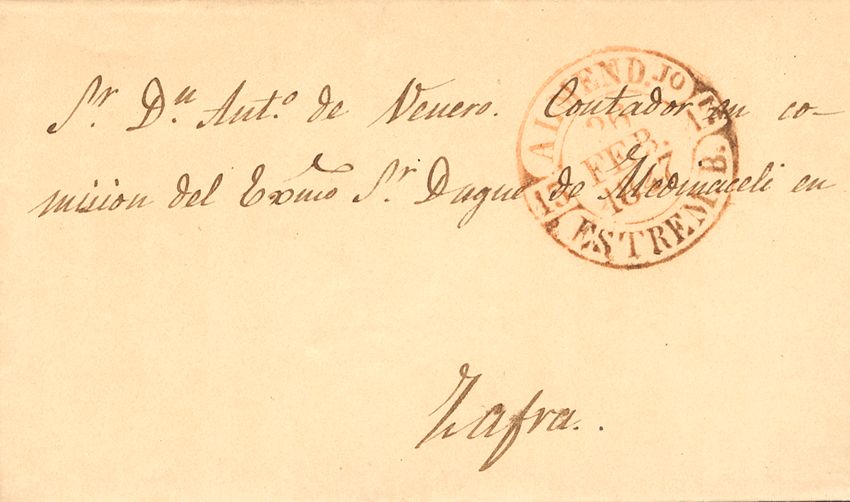 Sr. Dn. Anto. de Venero. Contador en co-
mision del Exmo Sr. Duque de Medinaceli en
Zafra.
ALMEND. JOVEN
FEB.
13
ESTREM. B.